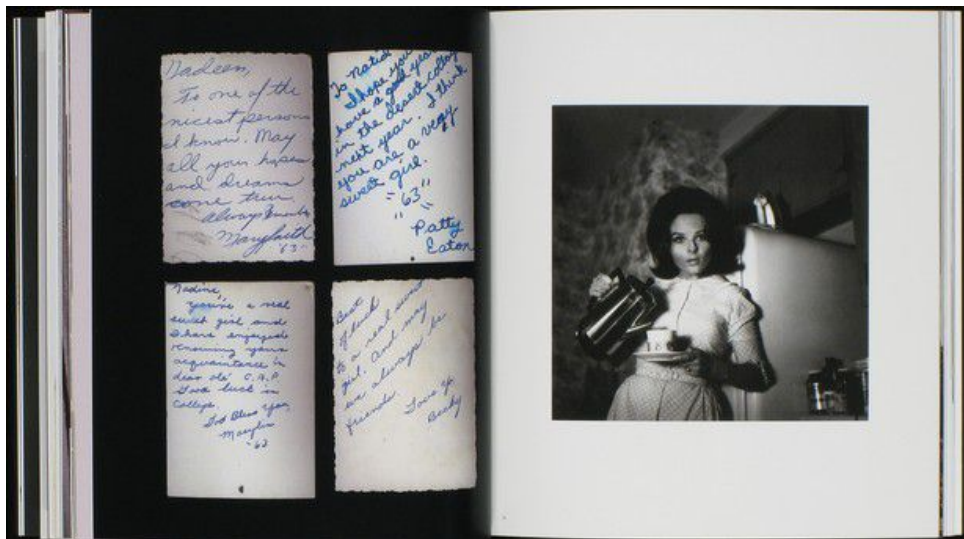 Nadeen,
To one of the
nicest persons
I know. May
all your hopes
and dreams
come true
Always
Maryfaith
'63'
To
I hope you
have a good year
in the desert
next year. I think
you are a very
sweet girl.
"63"
Patty
Eaton
Nadine,
You're a real
sweet girl and
I have enjoyed
knowing your
acquaintance in
dear ole' C.A.P.
Good luck in
College.
God Bless You,
Marylin
Best
of luck
to a real sweet
girl. And may
we always be
friends.
Love Ya,
Becky